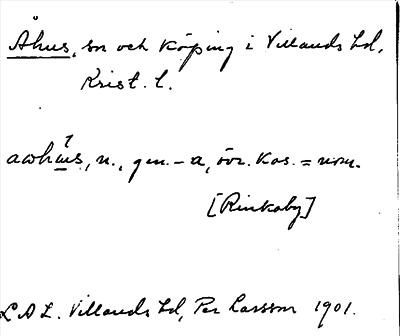 Åhus, sn och köping i Villands hd,
Krist. l.
aωhu̲s, n., gen. -a, övr. kas. = nom.
[Rinkaby]
L.A.L. Villands hd, Per Larsson 1901.